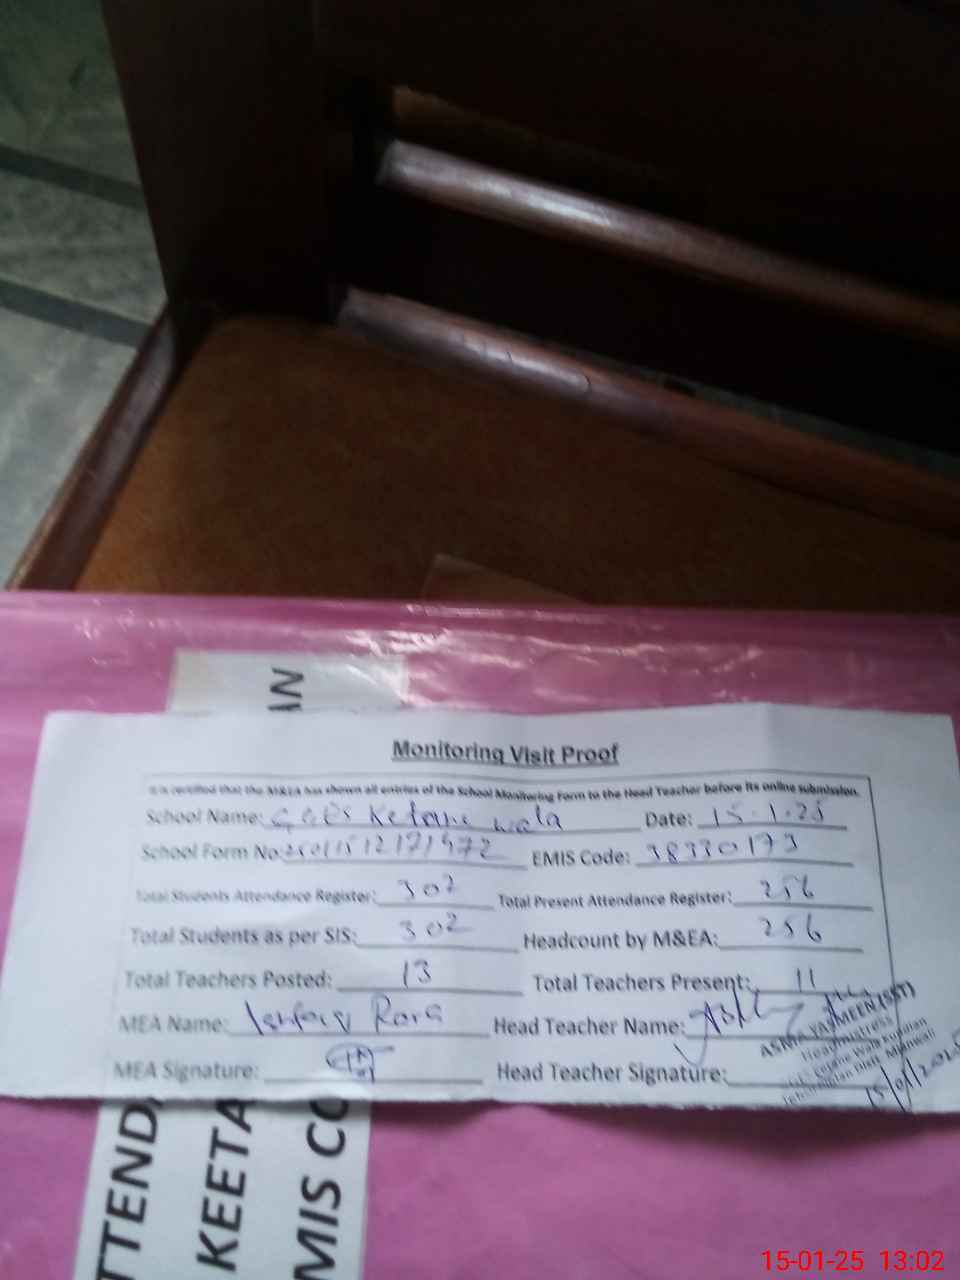 AN
Monitoring Visit Proof
It is certified that the M&EA has shown all entries of the School Monitoring Form to the Head Teacher before its online submission.
School Name: GGES Ketane wala Date: 15.1.25
School Form No: EMIS Code: 38330173
Total Students Attendance Register: 302 Total Present Attendance Register: 256
Total Students as per SIS: 302 Headcount by M&EA: 256
Total Teachers Posted: 13 Total Teachers Present: 11
MEA Name: Head Teacher Name:
ASMA YASMEEN (SST)
Headmistress
MEA Signature: Head Teacher Signature:
Mianwali
15/01/2025
TTENDA
KEETA
MIS CO
15-01-25 13:02